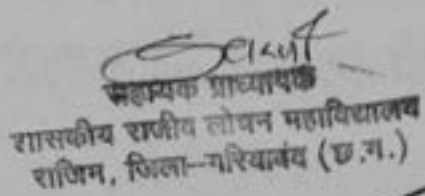 सहायक प्राध्यापक
शासकीय राजीव लोचन महाविद्यालय
राजिम, जिला-गरियाबंद (छ.ग.)